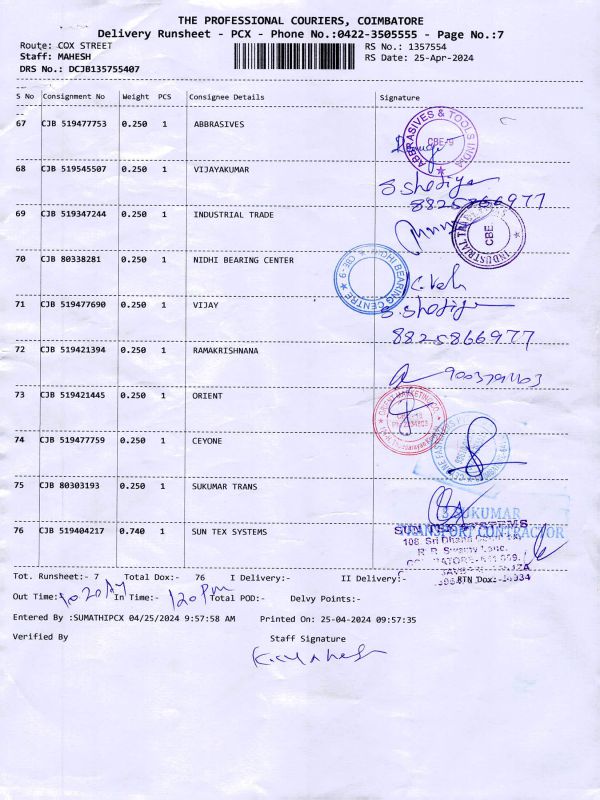 THE PROFESSIONAL COURIERS, COIMBATORE
Delivery Runsheet - PCX - Phone No.:0422-3505555 - Page No.:7
Route: COX STREET RS No.: 1357554
Staff: MAHESH RS Date: 25-Apr-2024
DRS No.: DCJB135755407
S No Consignment No Weight PCS Consignee Details Signature
67 CJB 519477753 0.250 1 ABBRASIVES
ABBRASIVES & TOOLS INDIA
CBE-9
68 CJB 519545507 0.250 1 VIJAYAKUMAR
8825866977
69 CJB 519347244 0.250 1 INDUSTRIAL TRADE
INDUSTRIAL
CBE
70 CJB 80338281 0.250 1 NIDHI BEARING CENTER
NIDHI BEARING CENTRE
CBE-9
71 CJB 519477690 0.250 1 VIJAY
8825866977
72 CJB 519421394 0.250 1 RAMAKRISHNANA
73 CJB 519421445 0.250 1 ORIENT
74 CJB 519477759 0.250 1 CEYONE
75 CJB 80303193 0.250 1 SUKUMAR TRANS
SUKUMAR
TRANSPORT CONTRACTOR
76 CJB 519404217 0.740 1 SUN TEX SYSTEMS
SUN TEX SYSTEMS
108, Sri
R. R. Swamy Lane,
Tot. Runsheet:- 7 Total Dox:- 76 I Delivery:- II Delivery:- RTN Dox:-
Out Time:- 10 20 AM In Time:- 1 20 PM Total POD:- Delvy Points:-
Entered By :SUMATHIPCX 04/25/2024 9:57:58 AM Printed On: 25-04-2024 09:57:35
Verified By Staff Signature